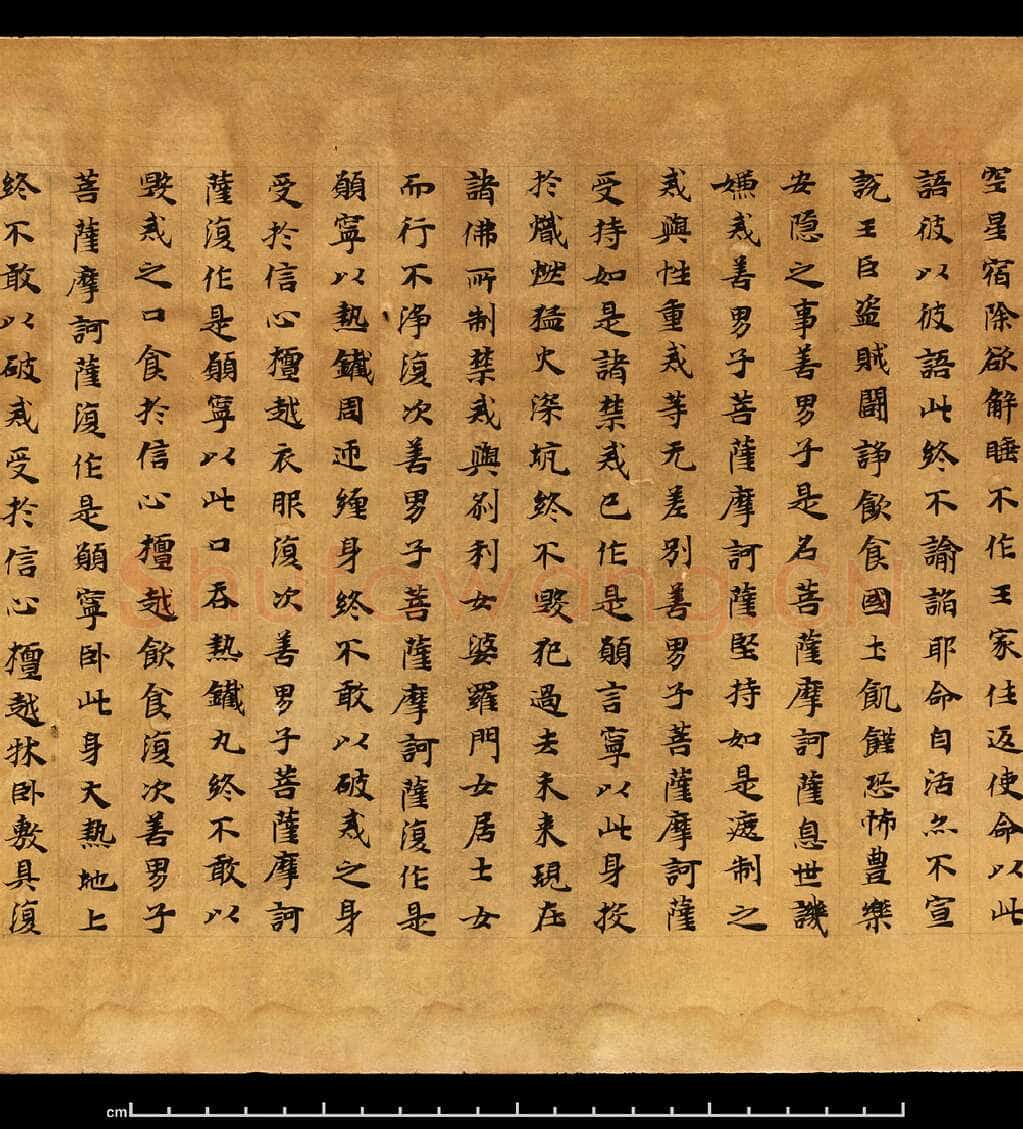 空星宿除欲解睡不作王家往返使命以此
語彼以彼語此終不諭諂耶命自活亦不宣
說王臣盜賊鬪諍飲食國土飢饉恐怖豊樂
安隱之事善男子是名菩薩摩訶薩息世譏
嫌戒善男子菩薩摩訶薩堅持如是遮制之
戒與性重戒等无差別善男子菩薩摩訶薩
受持如是諸禁戒已作是願言寧以此身投
於熾燃猛火深坑終不毀犯過去未來現在
諸佛所制禁戒與刹利女婆羅門女居士女
而行不淨復次善男子菩薩摩訶薩復作是
願寧以熱鐵周迊纏身終不敢以破戒之身
受於信心檀越衣服復次善男子菩薩摩訶
薩復作是願寧以此口吞熱鐵丸終不敢以
毀戒之口食於信心檀越飲食復次善男子
菩薩摩訶薩復作是願寧卧此身大熱地上
終不敢以破戒受於信心檀越牀卧敷具復
cm
Shufawang.cn